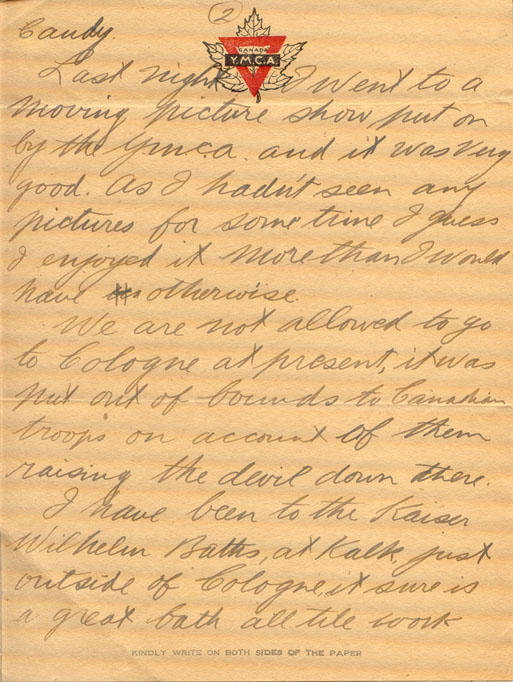 2
Candy.
CANADA
Y.M.C.A.
Last night I went to a
moving picture show put on
by the Y.m.c.a. and it was very
good. As I hadn't seen any
pictures for some time I guess
I enjoyed it more than I would
have otherwise.
We are not allowed to go
to Cologne at present, it was
put out of bounds to Canadian
troops on account of them
raising the devil down there.
I have been to the Kaiser
Wilhelm Baths, at Kalk, just
outside of Cologne, it sure is
a great bath all tile work
KINDLY WRITE ON BOTH SIDES OF THE PAPER